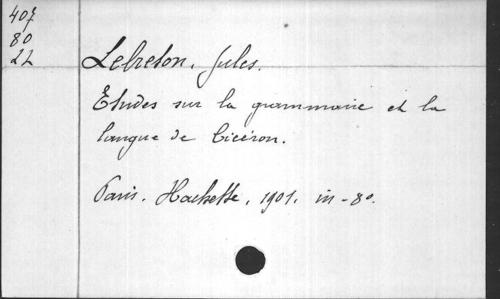 407
80
22
Lebreton, Jules.
Études sur la grammaire et la
langue de Cicéron.
Paris. Hachette, 1901. in-8º.